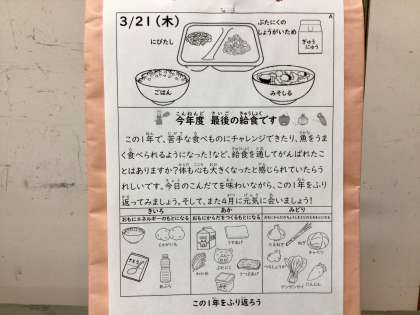 3/21(木)
にびたし
ぶたにくの
しょうがいため
ぎゅう
にゅう
ごはん
みそしる
今年度 最後の給食です
この1年で、苦手な食べものにチャレンジできたり、魚をう
まく食べられるようになった!など、給食を通してがんばれたこ
とはありますか?体も心も大きくなったと感じられていたらう
れしいです。今日のこんだてを味わいながら、この1年をふり
返ってみましょう。そして、また4月に元気に会いましょう!
きいろ あか みどり
おもにエネルギーのもとになる おもにからだをつくるもとになる
じゃがいも
さとう
あぶら
うすあげ
わかめ
ぶたにく
たまねぎ
ねぎ
キャベツ
チンゲンサイ
にんじん
この1年をふり返ろう